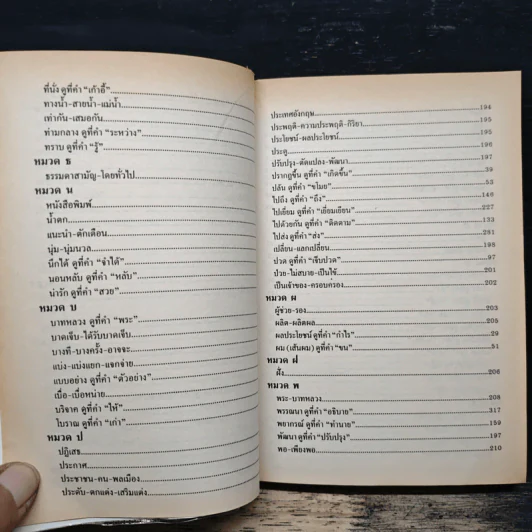 ที่นั่ง ดูที่คำ “เก้าอี้”
ทางน้ำ-สายน้ำ-แม่น้ำ
เท่ากัน-เสมอกัน
ท่ามกลาง ดูที่คำ “ระหว่าง”
ทราบ ดูที่คำ “รู้”
หมวด ธ
ธรรมดาสามัญ-โดยทั่วไป
หมวด น
หนังสือพิมพ์
น้ำตก
แนะนำ-ตักเตือน
นุ่ม-นุ่มนวล
นึกได้ ดูที่คำ “จำได้”
นอนหลับ ดูที่คำ “หลับ”
น่ารัก ดูที่คำ “สวย”
หมวด บ
บาทหลวง ดูที่คำ “พระ”
บาดเจ็บ-ได้รับบาดเจ็บ
บางที-บางครั้ง-อาจจะ
แบ่ง-แบ่งแยก-แจกจ่าย
แบบอย่าง ดูที่คำ “ตัวอย่าง”
เบื่อ-เบื่อหน่าย
บริจาค ดูที่คำ “ให้”
โบราณ ดูที่คำ “เก่า”
หมวด ป
ปฏิเสธ
ประกาศ
ประชาชน-คน-พลเมือง
ประดับ-ตกแต่ง-เสริมแต่ง
ประเทศอังกฤษ 194
ประพฤติ-ความประพฤติ-กิริยา 195
ประโยชน์-ผลประโยชน์ 195
ประตู
ปรับปรุง-ดัดแปลง-พัฒนา 197
ปรากฏขึ้น ดูที่คำ “เกิดขึ้น” 39
ปล้น ดูที่คำ “ขโมย” 53
ไปถึง ดูที่คำ “ถึง” 140
ไปเยี่ยม ดูที่คำ “เยี่ยมเยียน” 227
ไปด้วยกัน ดูที่คำ “ติดตาม” 133
ไปส่ง ดูที่คำ “ส่ง” 281
เปลี่ยน-แลกเปลี่ยน 198
ปวด ดูที่คำ “เจ็บปวด” 97
ป่วย-ไม่สบาย-เป็นไข้ 201
เป็นเจ้าของ-ครอบครอง 202
หมวด ผ
ผู้ช่วย-รอง 203
ผลิต-ผลิตผล 205
ผลประโยชน์ ดูที่คำ “กำไร” 29
ผม (เส้นผม) ดูที่คำ “ขน” 51
หมวด ฝ
ฝั่ง 206
หมวด พ
พระ-บาทหลวง 208
พรรณนา ดูที่คำ “อธิบาย” 317
พยากรณ์ ดูที่คำ “ทำนาย” 159
พัฒนา ดูที่คำ “ปรับปรุง” 197
พอ-เพียงพอ 210